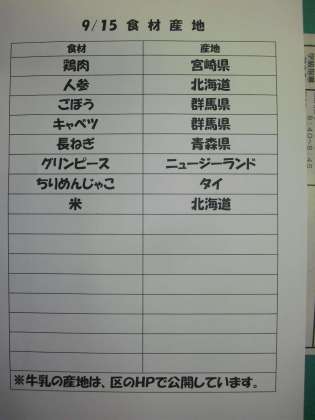 9/15 食材産地
食材 産地
鶏肉 宮崎県
人参 北海道
ごぼう 群馬県
キャベツ 群馬県
長ねぎ 青森県
グリンピース ニュージーランド
ちりめんじゃこ タイ
米 北海道
※牛乳の産地は、区のHPで公開しています。